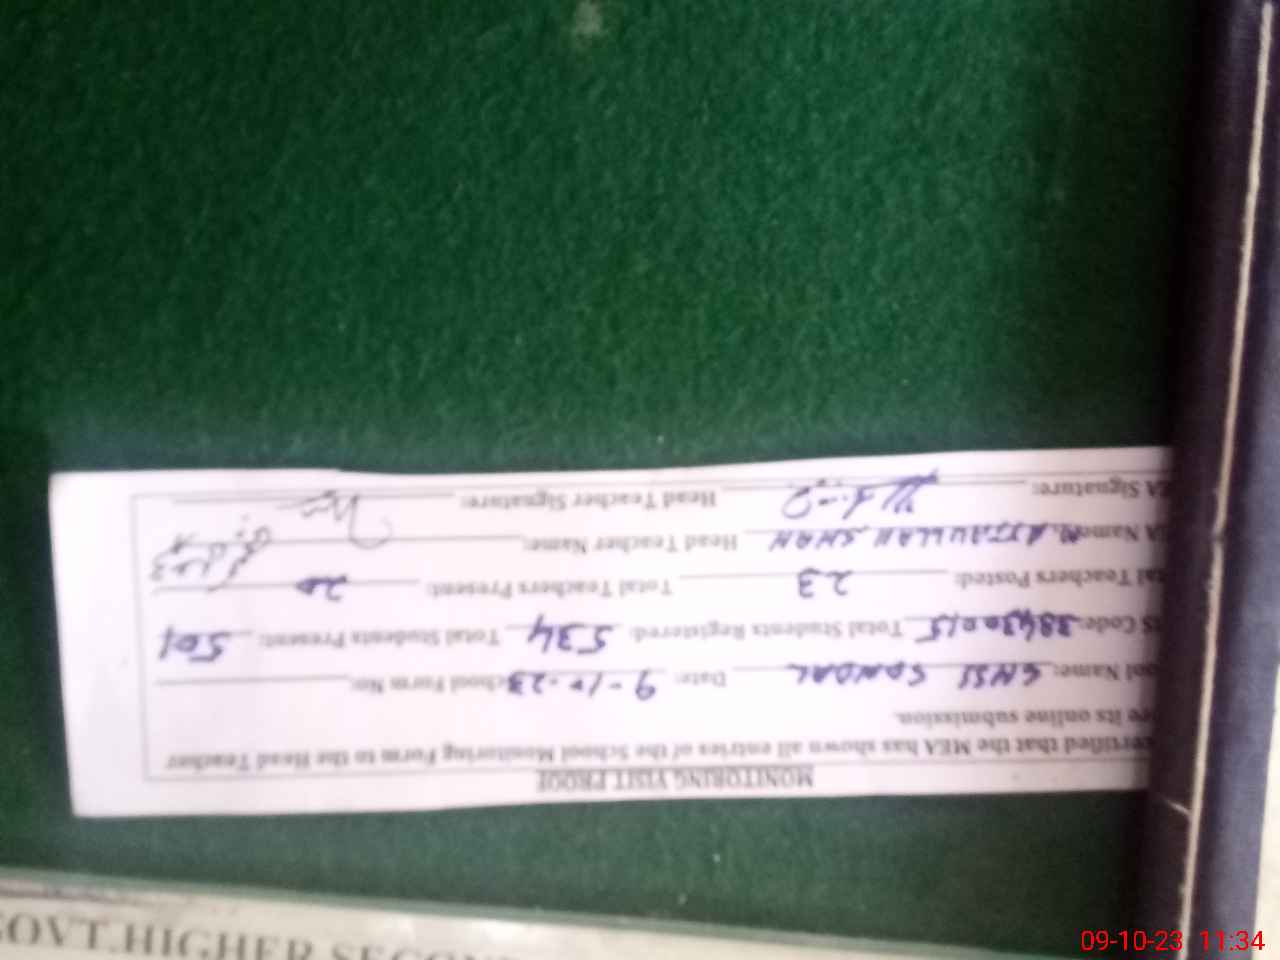 MONITORING VISIT PROOF
certified that the MEA has shown all entries of the School Monitoring Form to the Head Teacher
re its online submission.
ool Name: GHSS SANDAL Date: 9-10-23 School Form No:
S Code: 38430015 Total Students Registered: 534 Total Students Present: 501
tal Teachers Posted: 23 Total Teachers Present: 20
EA Name: M. ATTAULLAH SHAH Head Teacher Name:
EA Signature: Head Teacher Signature:
GOVT.HIGHER SECON
09-10-23 11:34